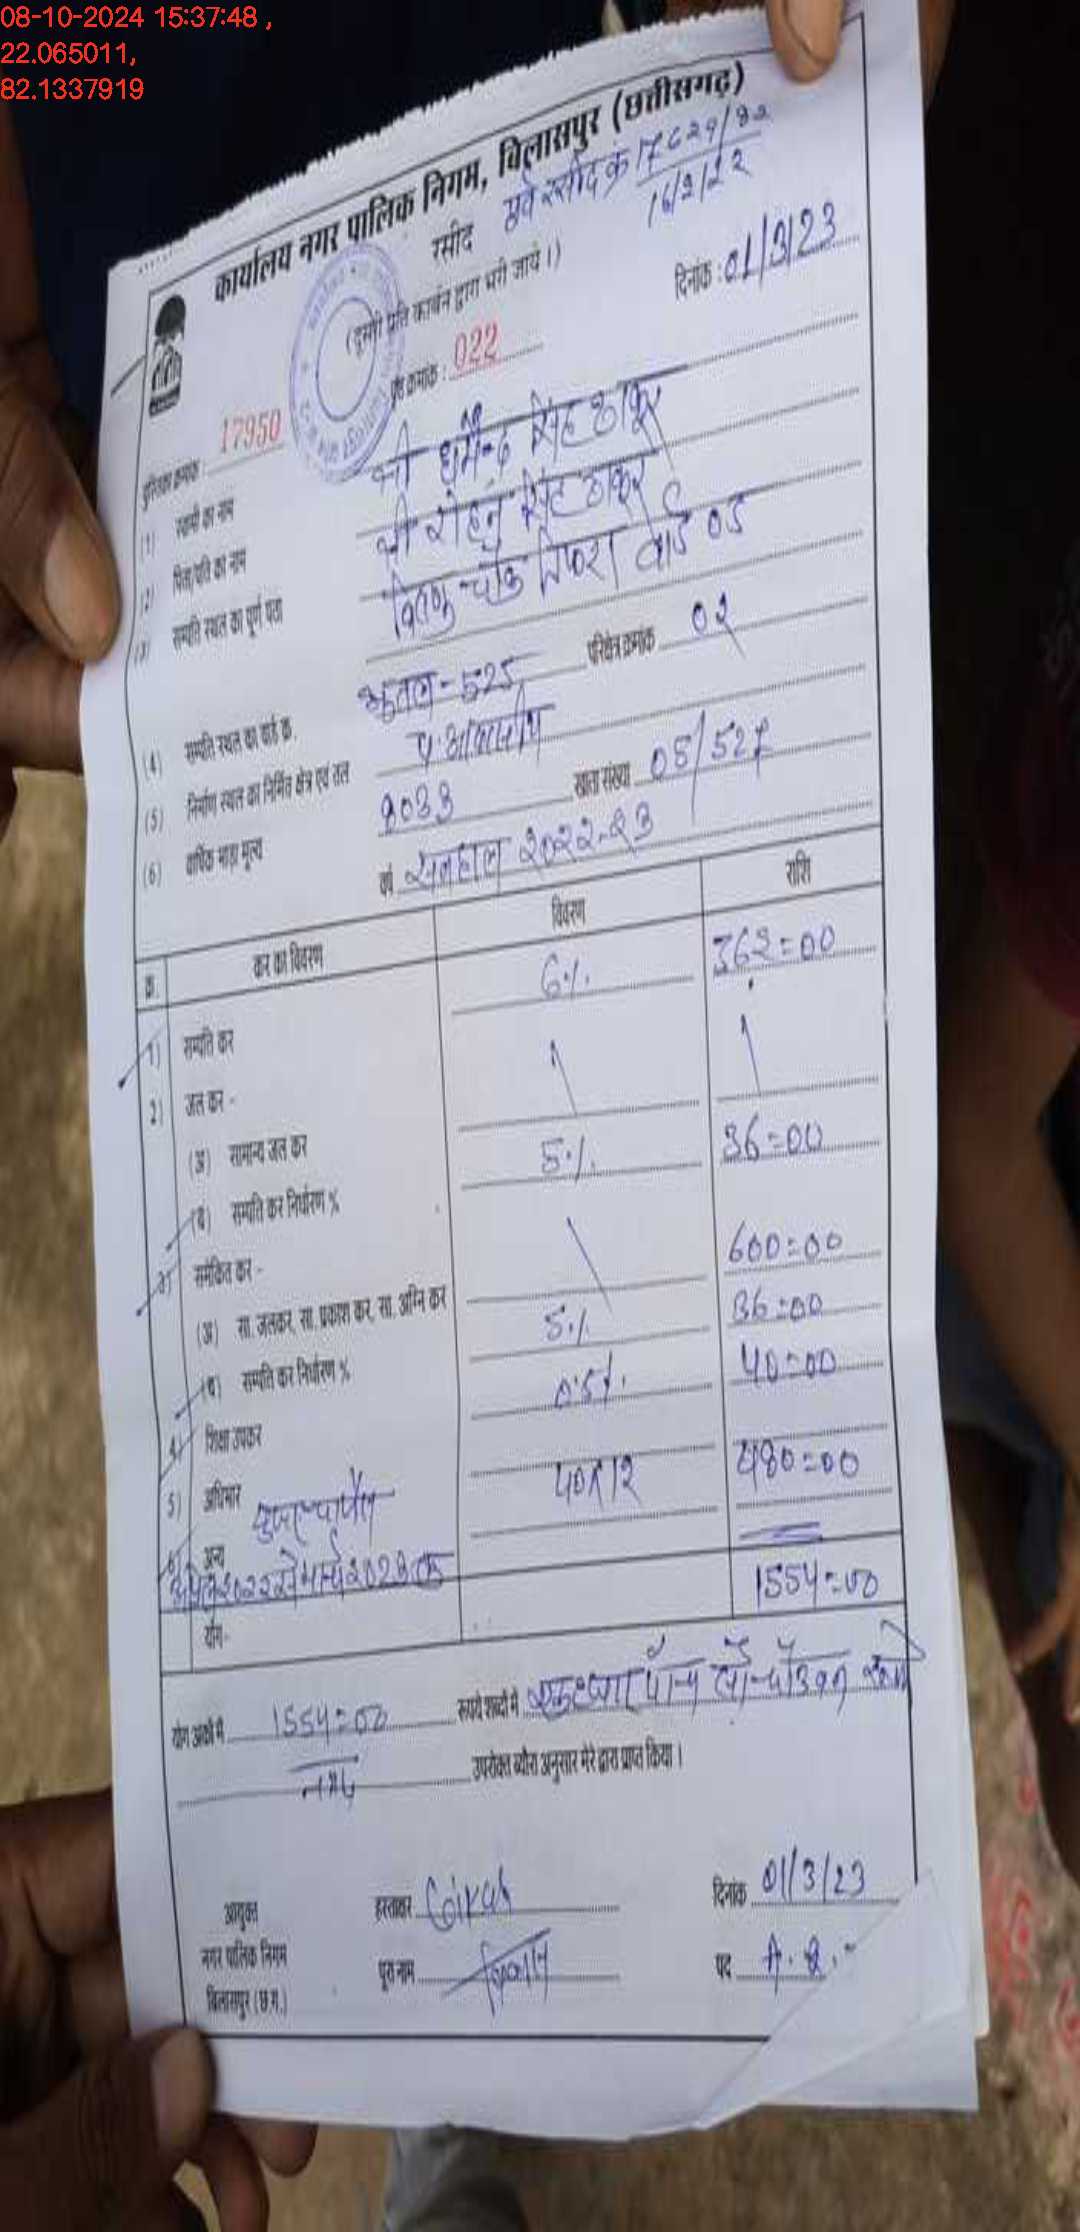 08-10-2024 15:37:48 ,
22.065011,
82.1337919
कार्यालय नगर पालिक निगम, बिलासपुर (छत्तीसगढ़)
रसीद
पूर्व रसीद क्रं 17629/92
16/2/22
(दूसरी प्रति कार्बन द्वारा भरी जाये।)
दिनांक : 01/3/23
पुस्तिका क्रमांक : 17950 पृष्ठ क्रमांक : 022
(1) स्वामी का नाम श्री धर्मेन्द्र सिंह ठाकुर
(2) पिता/पति का नाम श्री रोहनु सिंह ठाकुर
(3) सम्पत्ति स्थल का पूर्ण पता तिलक चौक तिफरा वार्ड 05
(4) सम्पत्ति स्थल का वार्ड क्र. भूतल - 525 परिक्षेत्र क्रमांक 02
(5) निर्माण स्थल का निर्मित क्षेत्र एवं तल प. आवासीय
(6) वार्षिक भाड़ा मूल्य 9033 खाता संख्या 05/527
वर्ष सनहाल 2022-23
क्र. कर का विवरण विवरण राशि
1) सम्पत्ति कर 6% 362=00
2) जल कर -
(अ) सामान्य जल कर
(ब) सम्पत्ति कर निर्धारण % 5% 36=00
3) समेकित कर -
(अ) सा. जलकर, सा. प्रकाश कर, सा. अग्नि कर 600=00
(ब) सम्पत्ति कर निर्धारण % 5% 36=00
4) शिक्षा उपकर 0.5% 40=00
5) अधिभार
6) अन्य यूजर चार्जेस 40x12 480=00
अप्रैल 2022 से मार्च 2023 तक
योग- 1554=00
योग अंकों में 1554=00 रूपये शब्दों में एक हजार पाँच सौ चौउवन रूपये
नगद उपरोक्त ब्यौरा अनुसार मेरे द्वारा प्राप्त किया।
आयुक्त
नगर पालिक निगम
बिलासपुर (छ.ग.)
हस्ताक्षर दिनांक 01/3/23
पूरा नाम पद